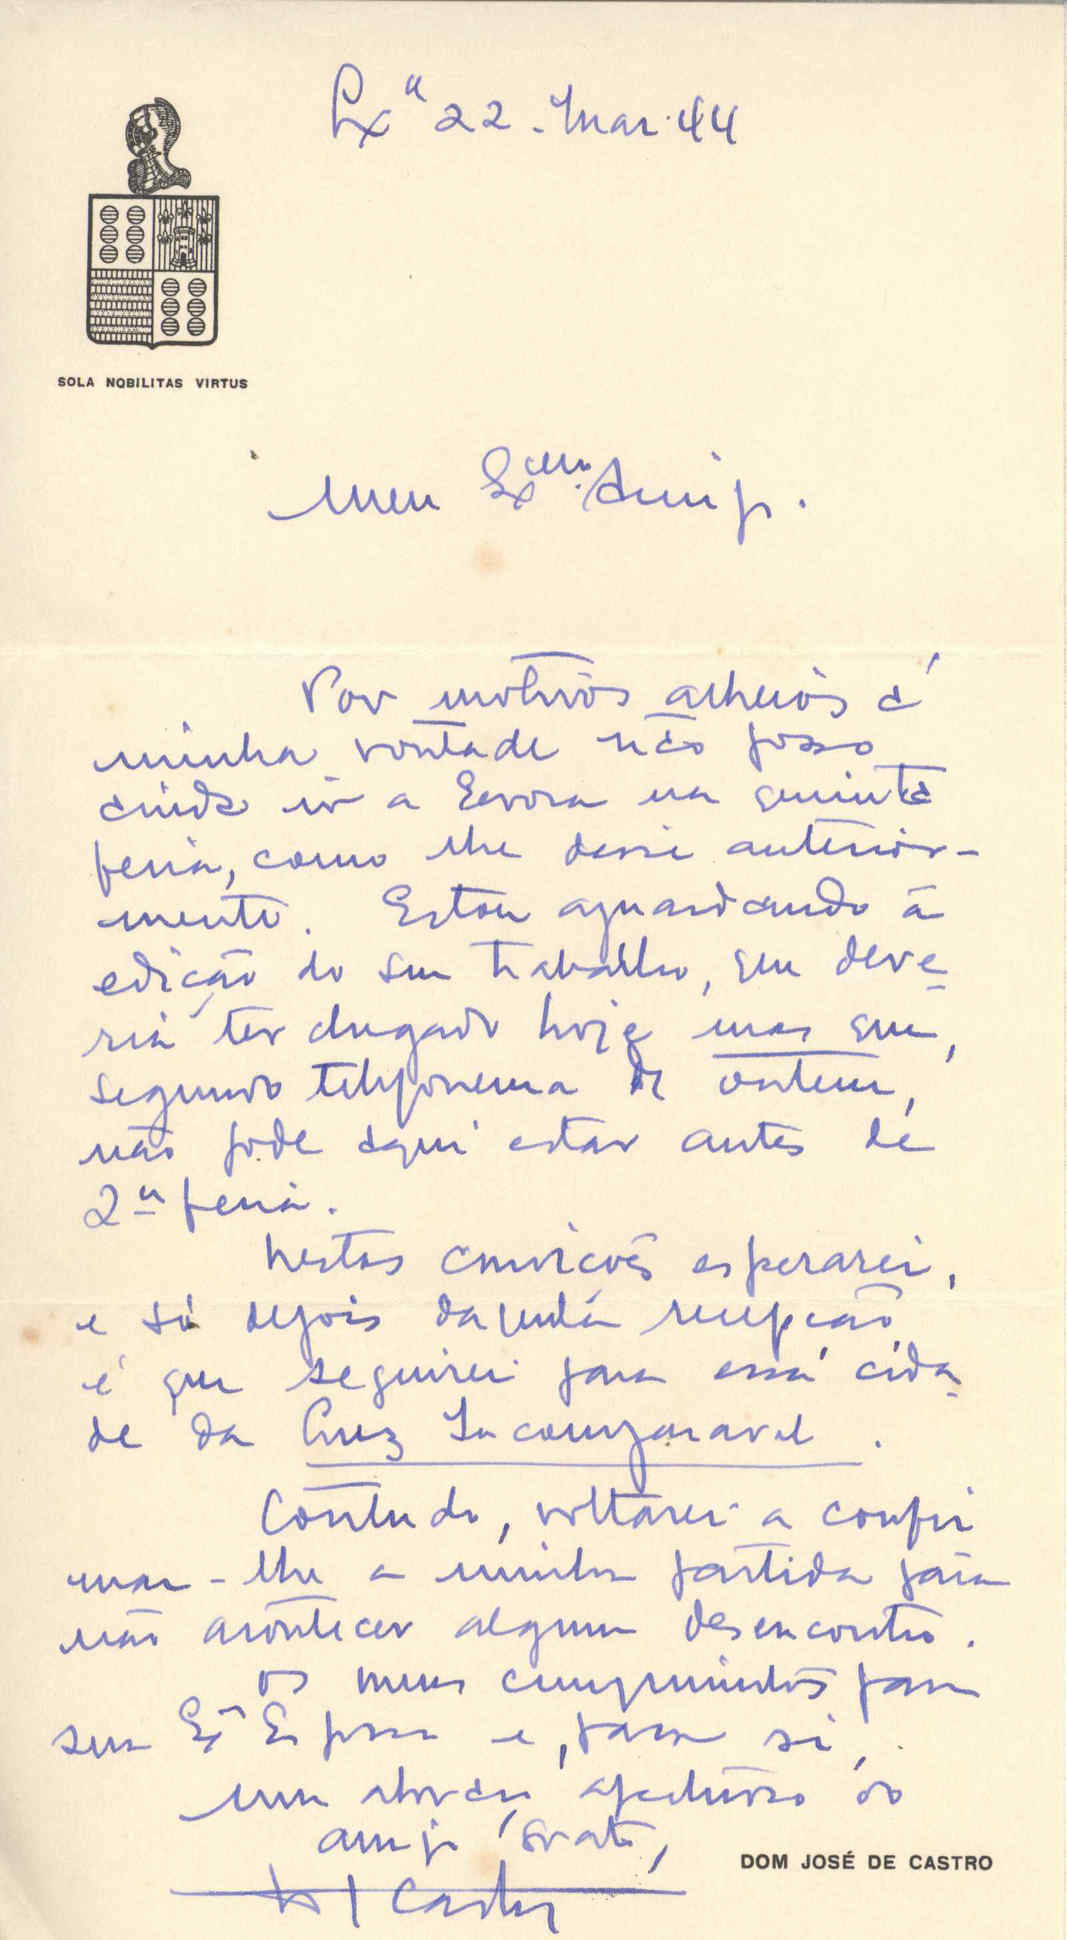 Lxª 22-Mar-44
SOLA NOBILITAS VIRTUS
Meu Exmo. Amigo.
Por motivos alheios á
minha vontade não posso
ainda ir a Evora na quinta
feira, como lhe disse anterior-
mente. Estou aguardando a
edição do seu trabalho, que deve-
ria ter chegado hoje mas que,
segundo telefonema de ontem,
não pode aqui estar antes de
2ª feira.
Nestas esperarei,
e só depois daquela recepção
é que seguirei para essa cida-
de da Cruz Incomparavel.
Contudo, voltarei a confir
mar-lhe a minha partida para
não acontecer algum desencontro.
Os meus cumprimentos para
sua Exª Esposa e, para si,
um abraço afectuoso do
amigo grato,
DOM JOSÉ DE CASTRO
Castro